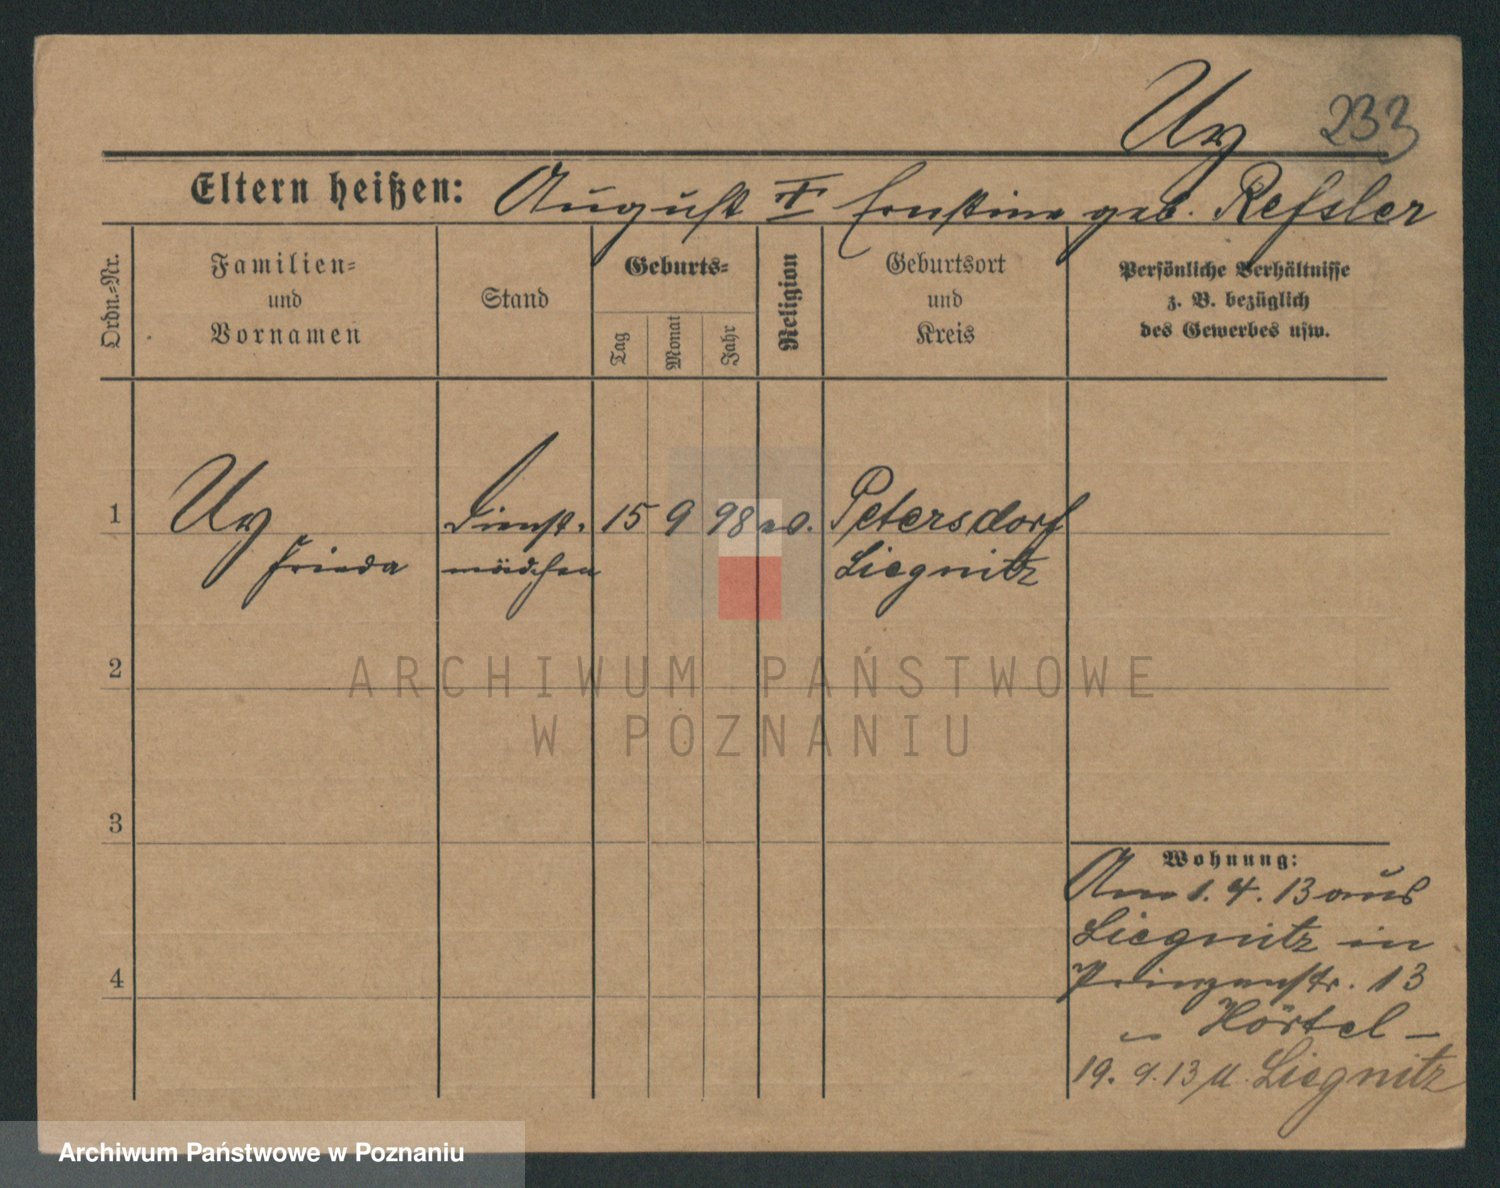 Ux 233
Eltern heißen: August II Ernstine geb. Refsler
Ordn.-Nr.
Familien-
und
Vornamen
Stand
Geburts-
Tag
Monat
Jahr
Religion
Geburtsort
und
Kreis
Persönliche Verhältnisse
z. B. bezüglich
des Gewerbes usw.
1 Ux Dienst- 15 9 98 ev. Petersdorf
Frieda mädchen Liegnitz
2
ARCHIWUM PAŃSTWOWE
W POZNANIU
3
Wohnung:
Am 1. 4. 13 aus
Liegnitz in
4
Prinzenstr. 13
Hörtel –
19. 9. 13 n. Liegnitz
Archiwum Państwowe w Poznaniu